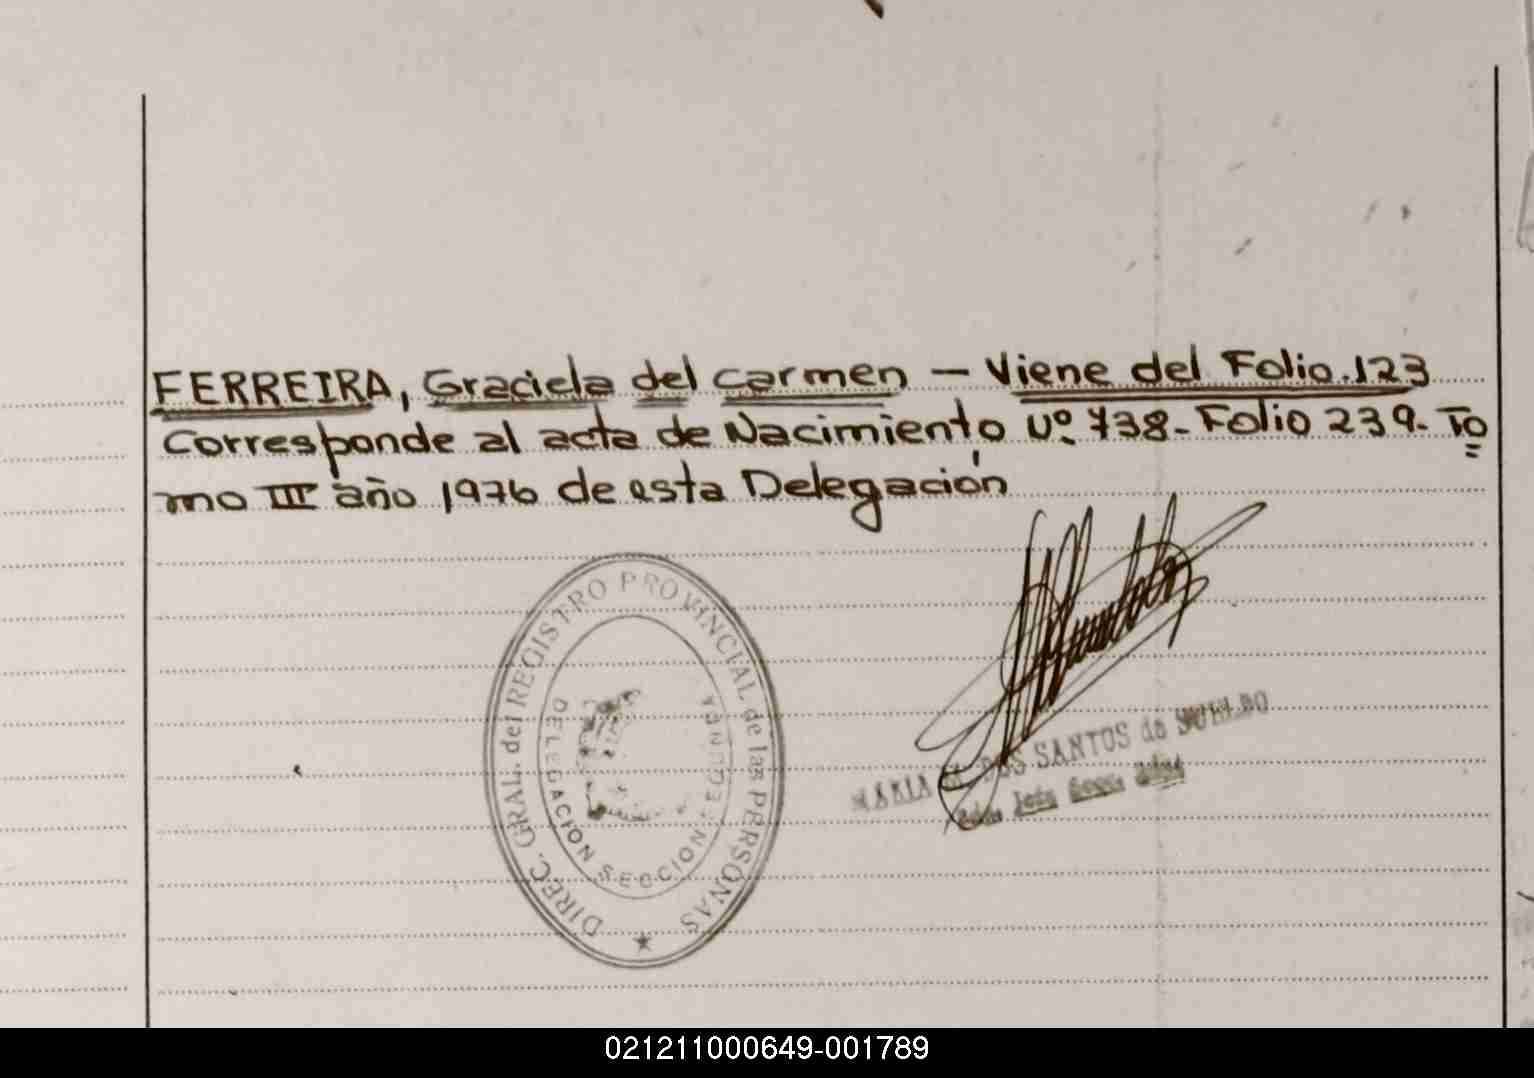 FERREIRA, Graciela del Carmen — Viene del Folio.123
Corresponde al acta de Nacimiento Nº 738- Folio 239- To
mo III año 1976 de esta Delegación
DIREC. GRAL. del REGISTRO PROVINCIAL de las PERSONAS
DELEGACION SECCION SEGUNDA
MARIA DOS SANTOS de
021211000649-001789